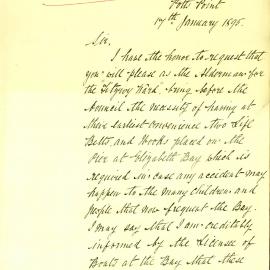 Potts Point
17th January 1895.
Sir,
I have the honor to request that
you will please as the Alderman for
the Fitzroy Ward, bring before the
Council the necessity of having at
their earliest convenience two Life
Belts, and Hooks placed on the
Pier at Elizabeth Bay which is
required in case any accident may
happen to the many children and
people that now frequent the Bay.
I may say that I am creditably
informed by the Licensee of
Boats at the Bay that these